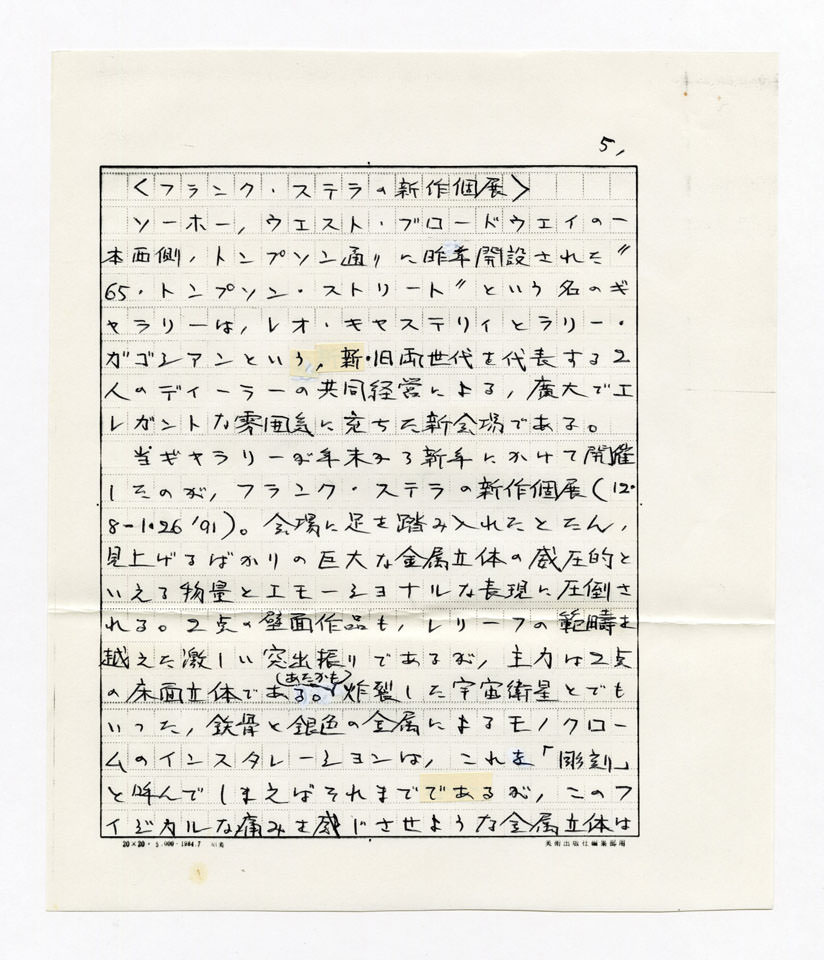 5,
〈フランク・ステラの新作個展〉
ソーホー,ウエスト・ブロードウェイの一
本西側,トンプソン通りに昨年開設された〝
65・トンプソン・ストリート〟という名のギ
ャラリーは,レオ・キャステリィとラリー・
ガゴシアンという,新・旧両世代を代表する2
人のディーラーの共同経営による,廣大でエ
レガントな雰囲気に充ちた新会場である。
当ギャラリーが年末から新年にかけて開催
したのが,フランク・ステラの新作個展(12・
8-1・26 '91)。会場に足を踏み入れたとたん,
見上げるばかりの巨大な金属立体の威圧的と
いえる物量とエモーショナルな表現に圧倒さ
れる。2点の壁面作品も,レリーフの範疇を
越えた激しい突出振りであるが,主力は2点
の床面立体である。(あたかも)炸裂した宇宙衛星とでも
いった,鉄骨と銀色の金属によるモノクロー
ムのインスタレーションは,これを「彫刻」
と呼んでしまえばそれまでであるが,このフ
ィジカルな痛みを感じさせような金属立体は
20×20・5,000・1984.7
美術出版社編集部用